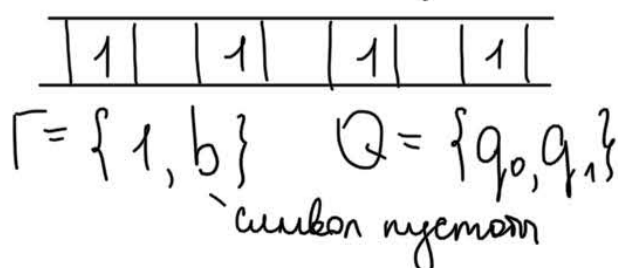 1 1 1 1
Γ = { 1, b } Q = { q₀, q₁ }
символ пустоты